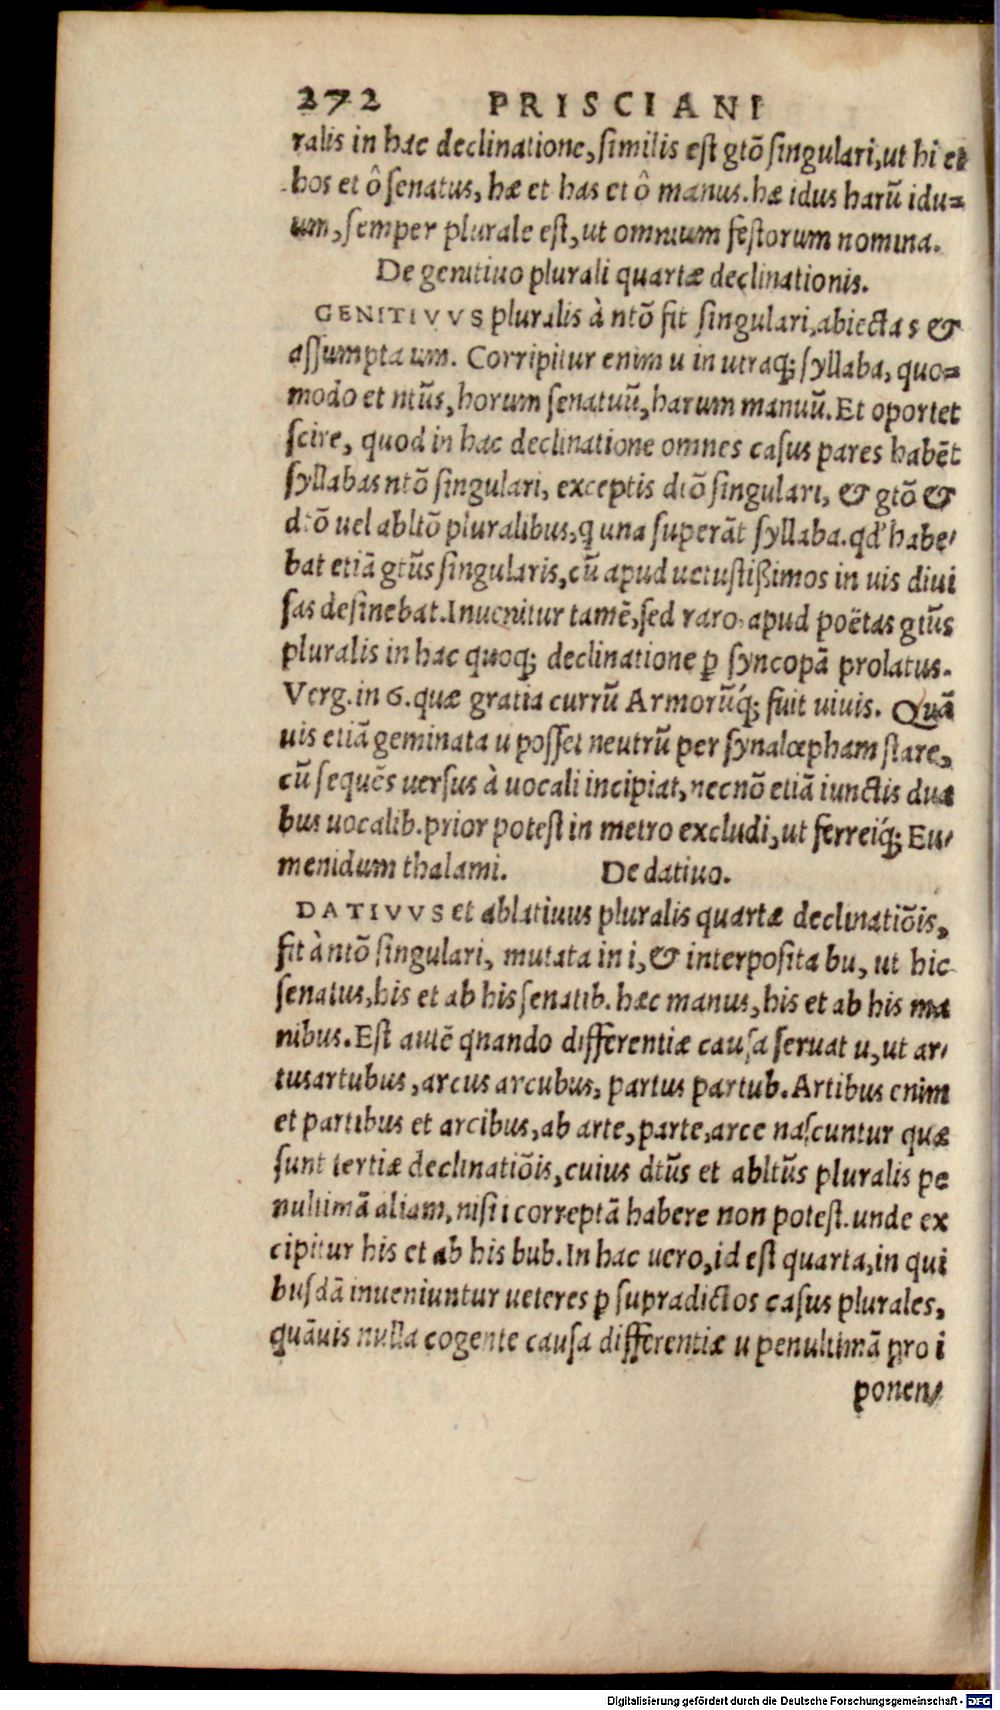 272 PRISCIANI
ralis in hac declinatione, similis est gtō singulari, ut hi et
hos et ô senatus, hæ et has et ô manus. hæ idus harū idu=
um, semper plurale est, ut omnium festorum nomina.
De genitiuo plurali quartæ declinationis.
GENITIVVS pluralis à ntō fit singulari, abiecta s &
assumpta um. Corripitur enim u in utraq; syllaba, quo=
modo et ntūs, horum senatuū, harum manuū. Et oportet
scire, quod in hac declinatione omnes casus pares habēt
syllabas ntō singulari, exceptis dtō singulari, & gtō &
dtō uel abltō pluralibus, q una superāt syllaba. qd' habe/
bat etiā gtūs singularis, cū apud uetustißimos in uis diui
sas desinebat. Inuenitur tamē, sed raro apud poëtas gtūs
pluralis in hac quoq; declinatione ꝑ syncopā prolatus.
Verg. in 6. quæ gratia currū Armorūq́; fuit uiuis. Quā
uis etiā geminata u posset neutrū per synalœpham stare,
cū sequēs uersus à uocali incipiat, necnō etiā iunctis dua
bus uocalib. prior potest in metro excludi, ut ferreiq́; Eu/
menidum thalami. De datiuo.
DATIVVS et ablatiuus pluralis quartæ declinatiōis,
fit à ntō singulari, mutata in i, & interposita bu, ut hic
senatus, his et ab his senatib. hæc manus, his et ab his ma
nibus. Est autē qnando differentiæ causa seruat u, ut ar/
tus artubus, arcus arcubus, partus partub. Artibus enim
et partibus et arcibus, ab arte, parte, arce nascuntur quæ
sunt tertiæ declinatiōis, cuius dtūs et abltūs pluralis pe
nultimā aliam, nisi i correptā habere non potest. unde ex
cipitur his et ab his bub. In hac uero, id est quarta, in qui
busdā inueniuntur ueteres ꝑ supradictos casus plurales,
quāuis nulla cogente causa differentiæ u penultimā pro i
ponen/
Digitalisierung gefördert durch die Deutsche Forschungsgemeinschaft - DFG